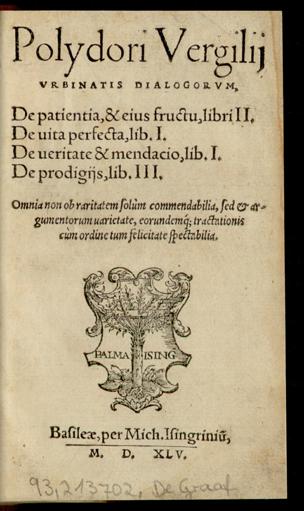 Polydori Vergilij
VRBINATIS DIALOGORVM,
De patientia,& eius fructu,libri II.
De uita perfecta,lib. I.
De ueritate & mendacio,lib. I.
De prodigijs,lib. III.
Omnia non ob raritatem solùm commendabilia, sed & ar-
gumentorum uarietate, eorundemq; tractationis
cùm ordine tum felicitate spectabilia.
PALMA ISING
Basileæ, per Mich. Isingriniũ,
M. D. XLV.
93,213702, De Graaf